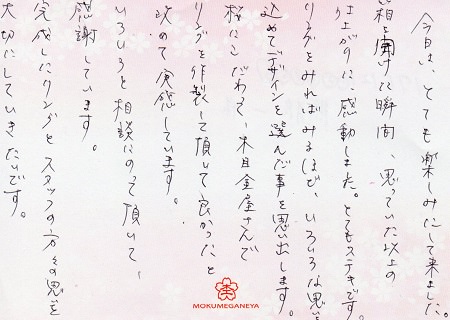 今日は、とても楽しみにして来ました。
箱を開けた瞬間、思っていた以上の
仕上がりに、感動しました。とてもステキです。
リングをみればみるほど、いろいろな思いを
込めてデザインを選んだ事を思い出します。
桜にこだわって、木目金屋さんで
リングを作製して頂いて良かったと
改めて実感しています。
いろいろと相談にのって頂いて、
感謝しています。
完成したリングとスタッフの方々の思いを
大切にしていきたいです。
MOKUMEGANEYA